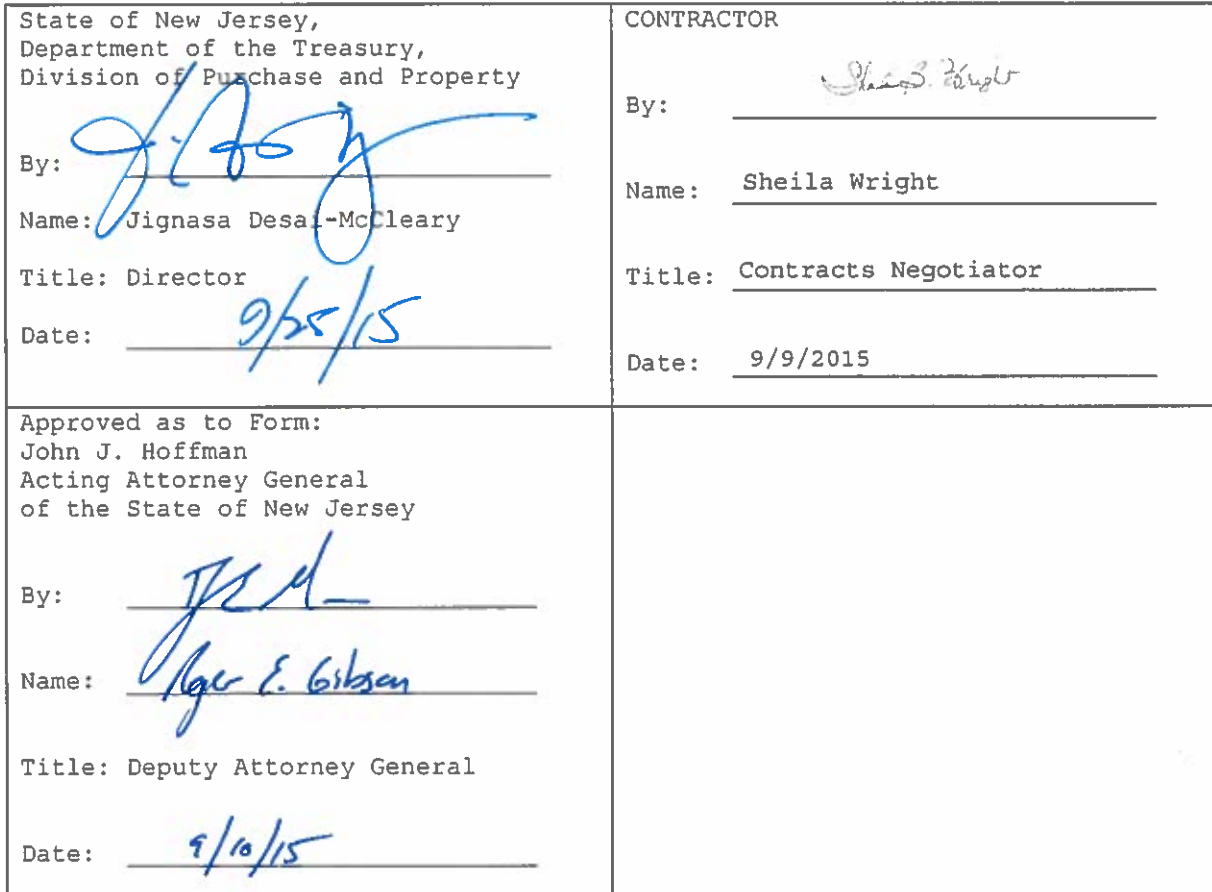 State of New Jersey,
Department of the Treasury,
Division of Purchase and Property
By:
Name: Jignasa Desai-McCleary
Title: Director
Date: 9/25/15
CONTRACTOR
By: Sheila B. Wright
Name: Sheila Wright
Title: Contracts Negotiator
Date: 9/9/2015
Approved as to Form:
John J. Hoffman
Acting Attorney General
of the State of New Jersey
By:
Name: Roger E. Gibson
Title: Deputy Attorney General
Date: 9/10/15